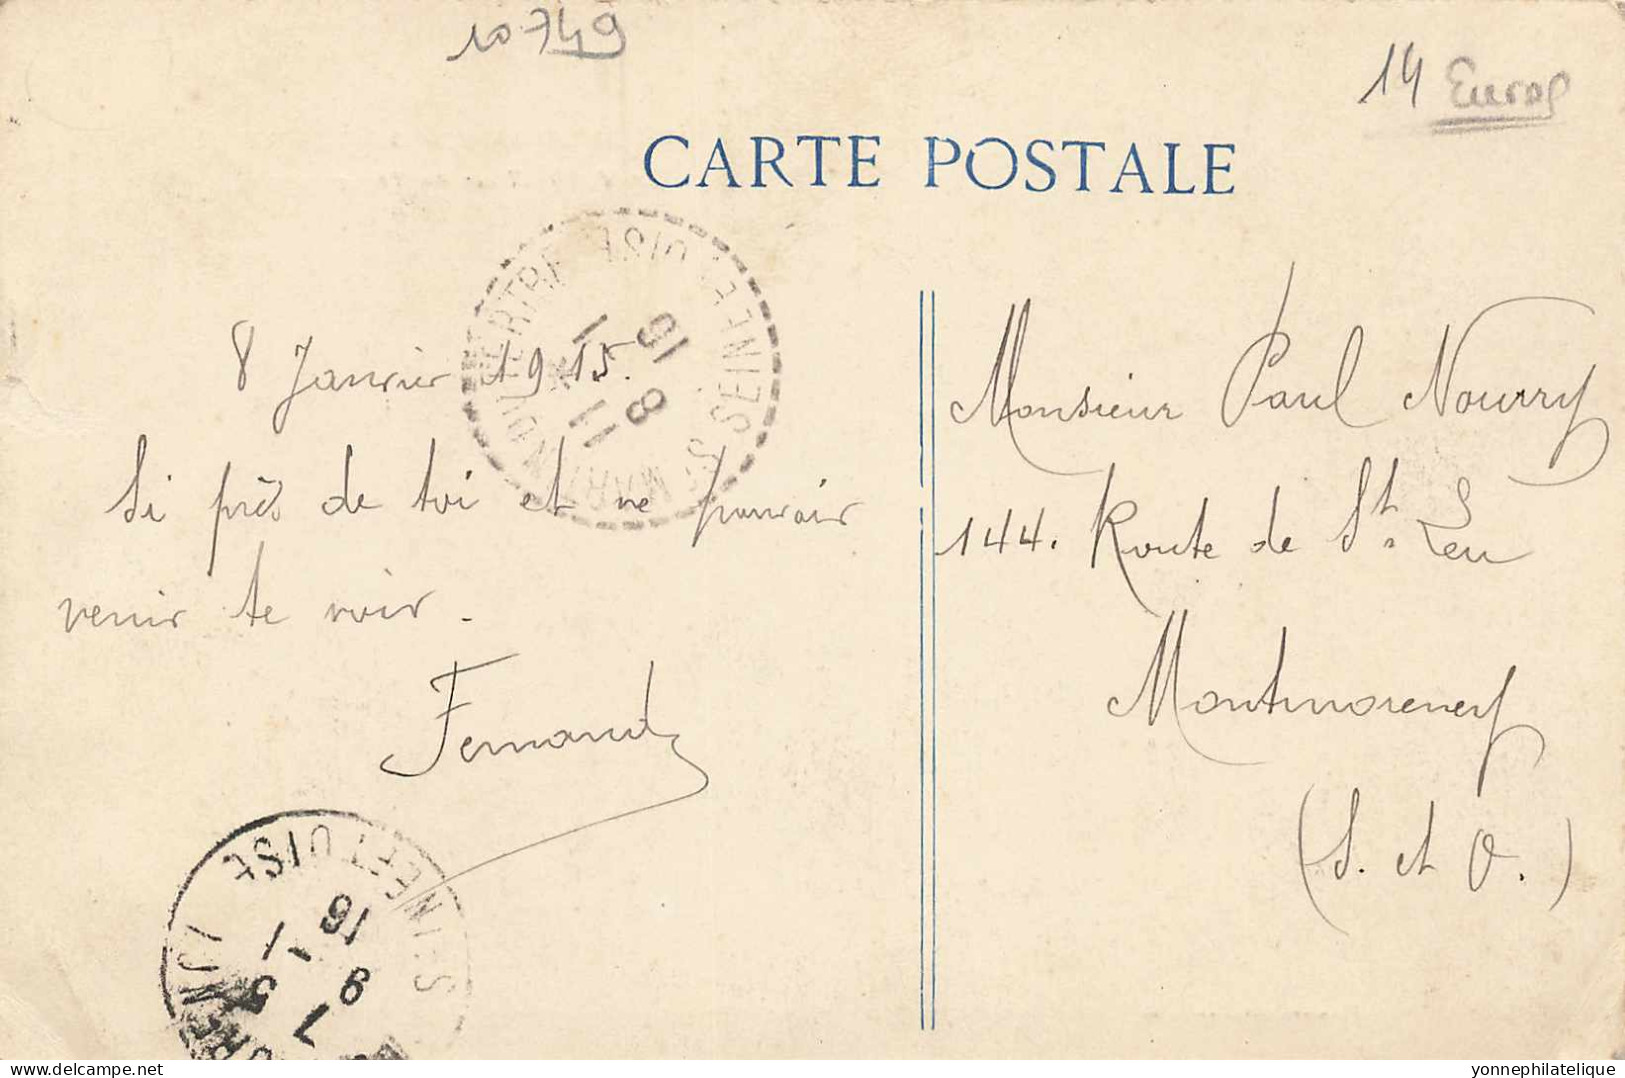 10749
14 Euros
CARTE POSTALE
8 Janvier 1915.
Si près de toi et ne pouvoir
venir te voir.
Fernand
Monsieur Paul Nourry
144. Route de St. Leu
Montmorency
(S. et O.)
SEINE ET OISE
11
8 1
16
SEINE ET OISE
7 5
9 1
16
delcampe.net
yonnephilatelique